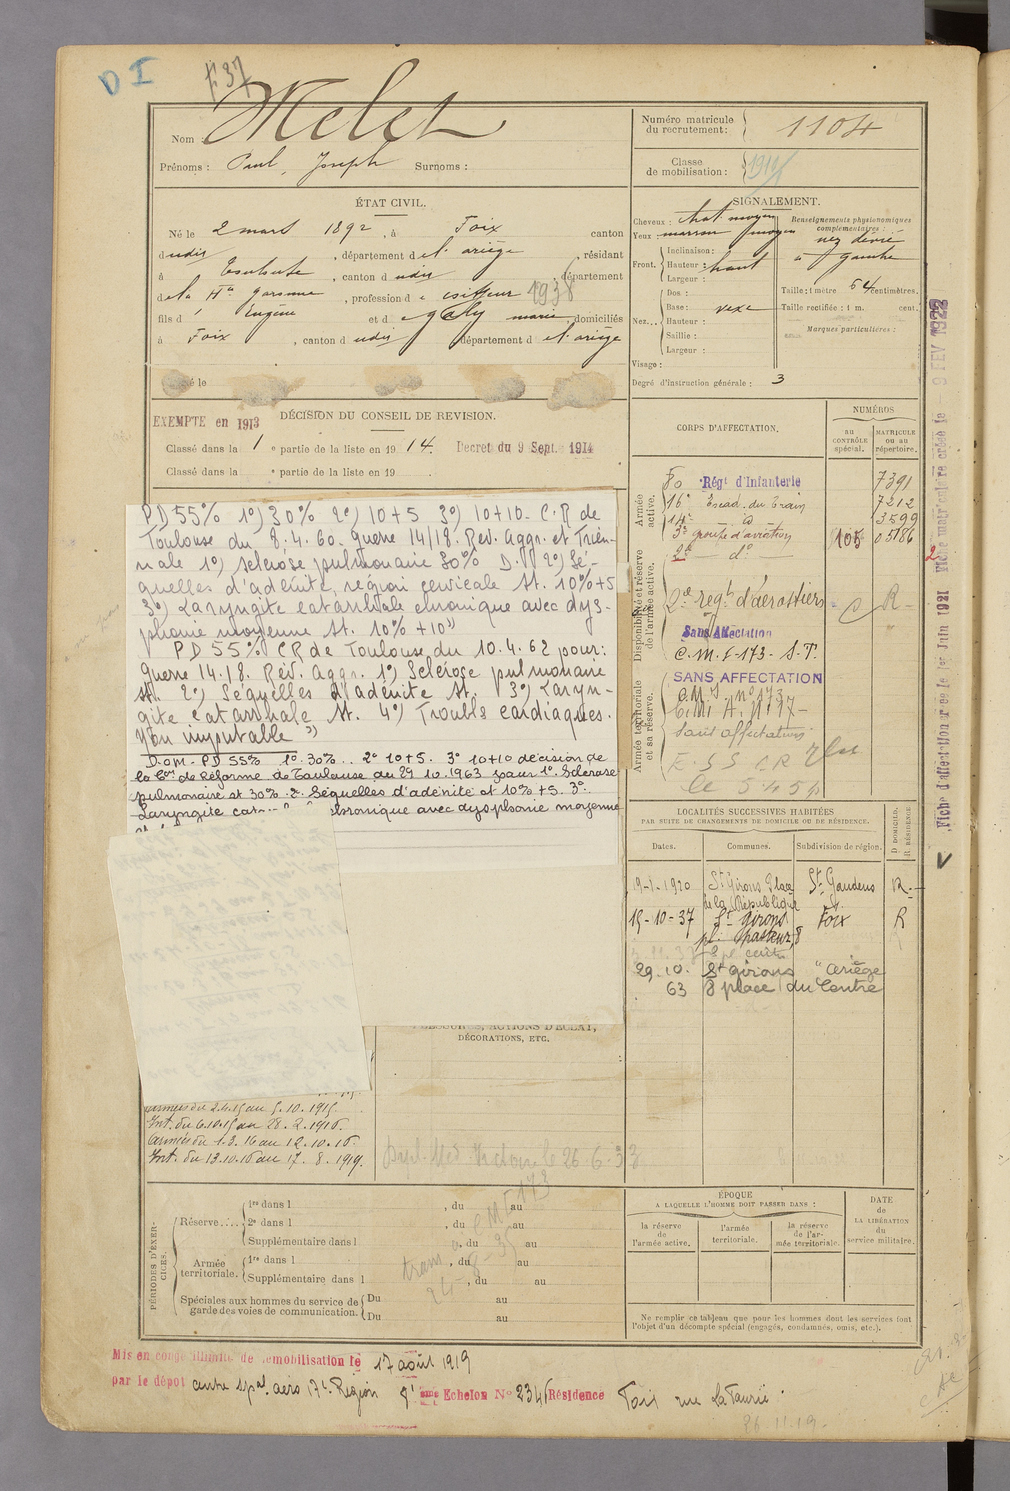 D I
F 37
Nom : Melet
Prénoms : Paul, Joseph Surnoms :
Numéro matricule du recrutement : 1104
Classe de mobilisation : 1914
ÉTAT CIVIL.
Né le 2 mars 1892, à Foix canton
dudit, département de l'ariège, résidant
à Toulouse, canton dudit, département
de la Hte garonne, profession de coiffeur 1938
fils d' Eugène et de Galy marie, domiciliés
à Foix, canton dudit département de l'ariège
SIGNALEMENT.
Cheveux : chat. moyen
Yeux : marron moyen
Front. Inclinaison :
Hauteur : haut
Largeur :
Nez... Dos :
Base : vexe
Hauteur :
Saillie :
Largeur :
Visage :
Degré d'instruction générale : 3
Renseignements physionomiques complémentaires :
nez dévié
à gauche
Taille : 1 mètre 64 centimètres.
Taille rectifiée : 1 m. cent.
Marques particulières :
DÉCISION DU CONSEIL DE REVISION.
EXEMPTE en 1913
Classé dans la 1 e partie de la liste en 1914. Decret du 9 Sept. 1914
Classé dans la e partie de la liste en 19
PD 55% 1°) 30% 2°) 10+5 3°) 10+10. C.R de
Toulouse du 8.4.60. guerre 14/18. Rev. Aggr. et Trien-
nale 1°) sclérose pulmonaire 30% D. 2°) Sé-
quelles d'adénite région cervicale st. 10%+5
3°) Laryngite catarrhale chronique avec dys-
phonie moyenne st. 10% +10
PD 55% CR de Toulouse du 10.4.62 pour:
guerre 14.18. Rev. Aggr. 1°) Sclérose pulmonaire
st. 2°) Séquelles d'adénite st. 3°) Laryn-
gite catarrhale st. 4°) Troubls cardiaques.
Non imputable
D.O.M. PD 55% 1° 30% .. 2° 10+5. 3° 10+10 décision de
la Com de Réforme de Toulouse du 29 10.1963 pour 1°. Sclérose
pulmonaire st 30%. 2. Séquelles d'adénite et 10% +5. 3°.
Laryngite cat chronique avec dysphonie moyenne
CORPS D'AFFECTATION.
NUMÉROS
au CONTRÔLE spécial.
MATRICULE OU AU répertoire.
Armée active.
80 Régt d'Infanterie 7391
16e Escad. du Train 7212
14e d° 3599
3e groupe d'aviation 105 05786
2e d°
Disponibilité et réserve de l'armée active.
2e regt d'aérostiers C R
Sans Affectation
C.M.I-173- S.T.
Armée territoriale et sa réserve.
SANS AFFECTATION
Sans affectation
Fiche d'affectation créée le 1er Juin 1921 Fiche matriculaire créée le - 9 FEV 1922
LOCALITÉS SUCCESSIVES HABITÉES
PAR SUITE DE CHANGEMENTS DE DOMICILE OU DE RÉSIDENCE.
Dates. Communes. Subdivision de région. D DOMICILE. R RÉSIDENCE
19-1-1920 St Girons Place de la République St Gaudens R.
15-10-37 St Girons pl. Pasteur, 8 Foix R
29.10.63 St girons Ariège
8 place du Centre
ACTIONS D'ÉCLAT,
DÉCORATIONS, ETC.
armées du 2.4.15 au 5.10.1915.
Int. du 6.10.15 au 28.2.1916.
armées du 1.3.16 au 12.10.16.
Int. du 13.10.16 au 17.8.1919.
Dipl. Med. Victoire le 26.6.33
PÉRIODES D'EXERCICES.
Réserve..... 1re dans l , du au
2e dans l , du au
Supplémentaire dans l , du au
Armée territoriale. 1re dans l , du au
Supplémentaire dans l , du au
Spéciales aux hommes du service de garde des voies de communication. Du au
Du au
ÉPOQUE
A LAQUELLE L'HOMME DOIT PASSER DANS :
la réserve de l'armée active.
l'armée territoriale.
la réserve de l'armée territoriale.
DATE de LA LIBÉRATION du service militaire.
Ne remplir ce tableau que pour les hommes dont les services font
l'objet d'un décompte spécial (engagés, condamnés, omis, etc.).
Mis en congé illimité de démobilisation le 17 août 1919
par le dépôt centre spal aéro 17e Région 8e Echelon N° 234 Résidence Foix rue La Faurie
26.11.19.